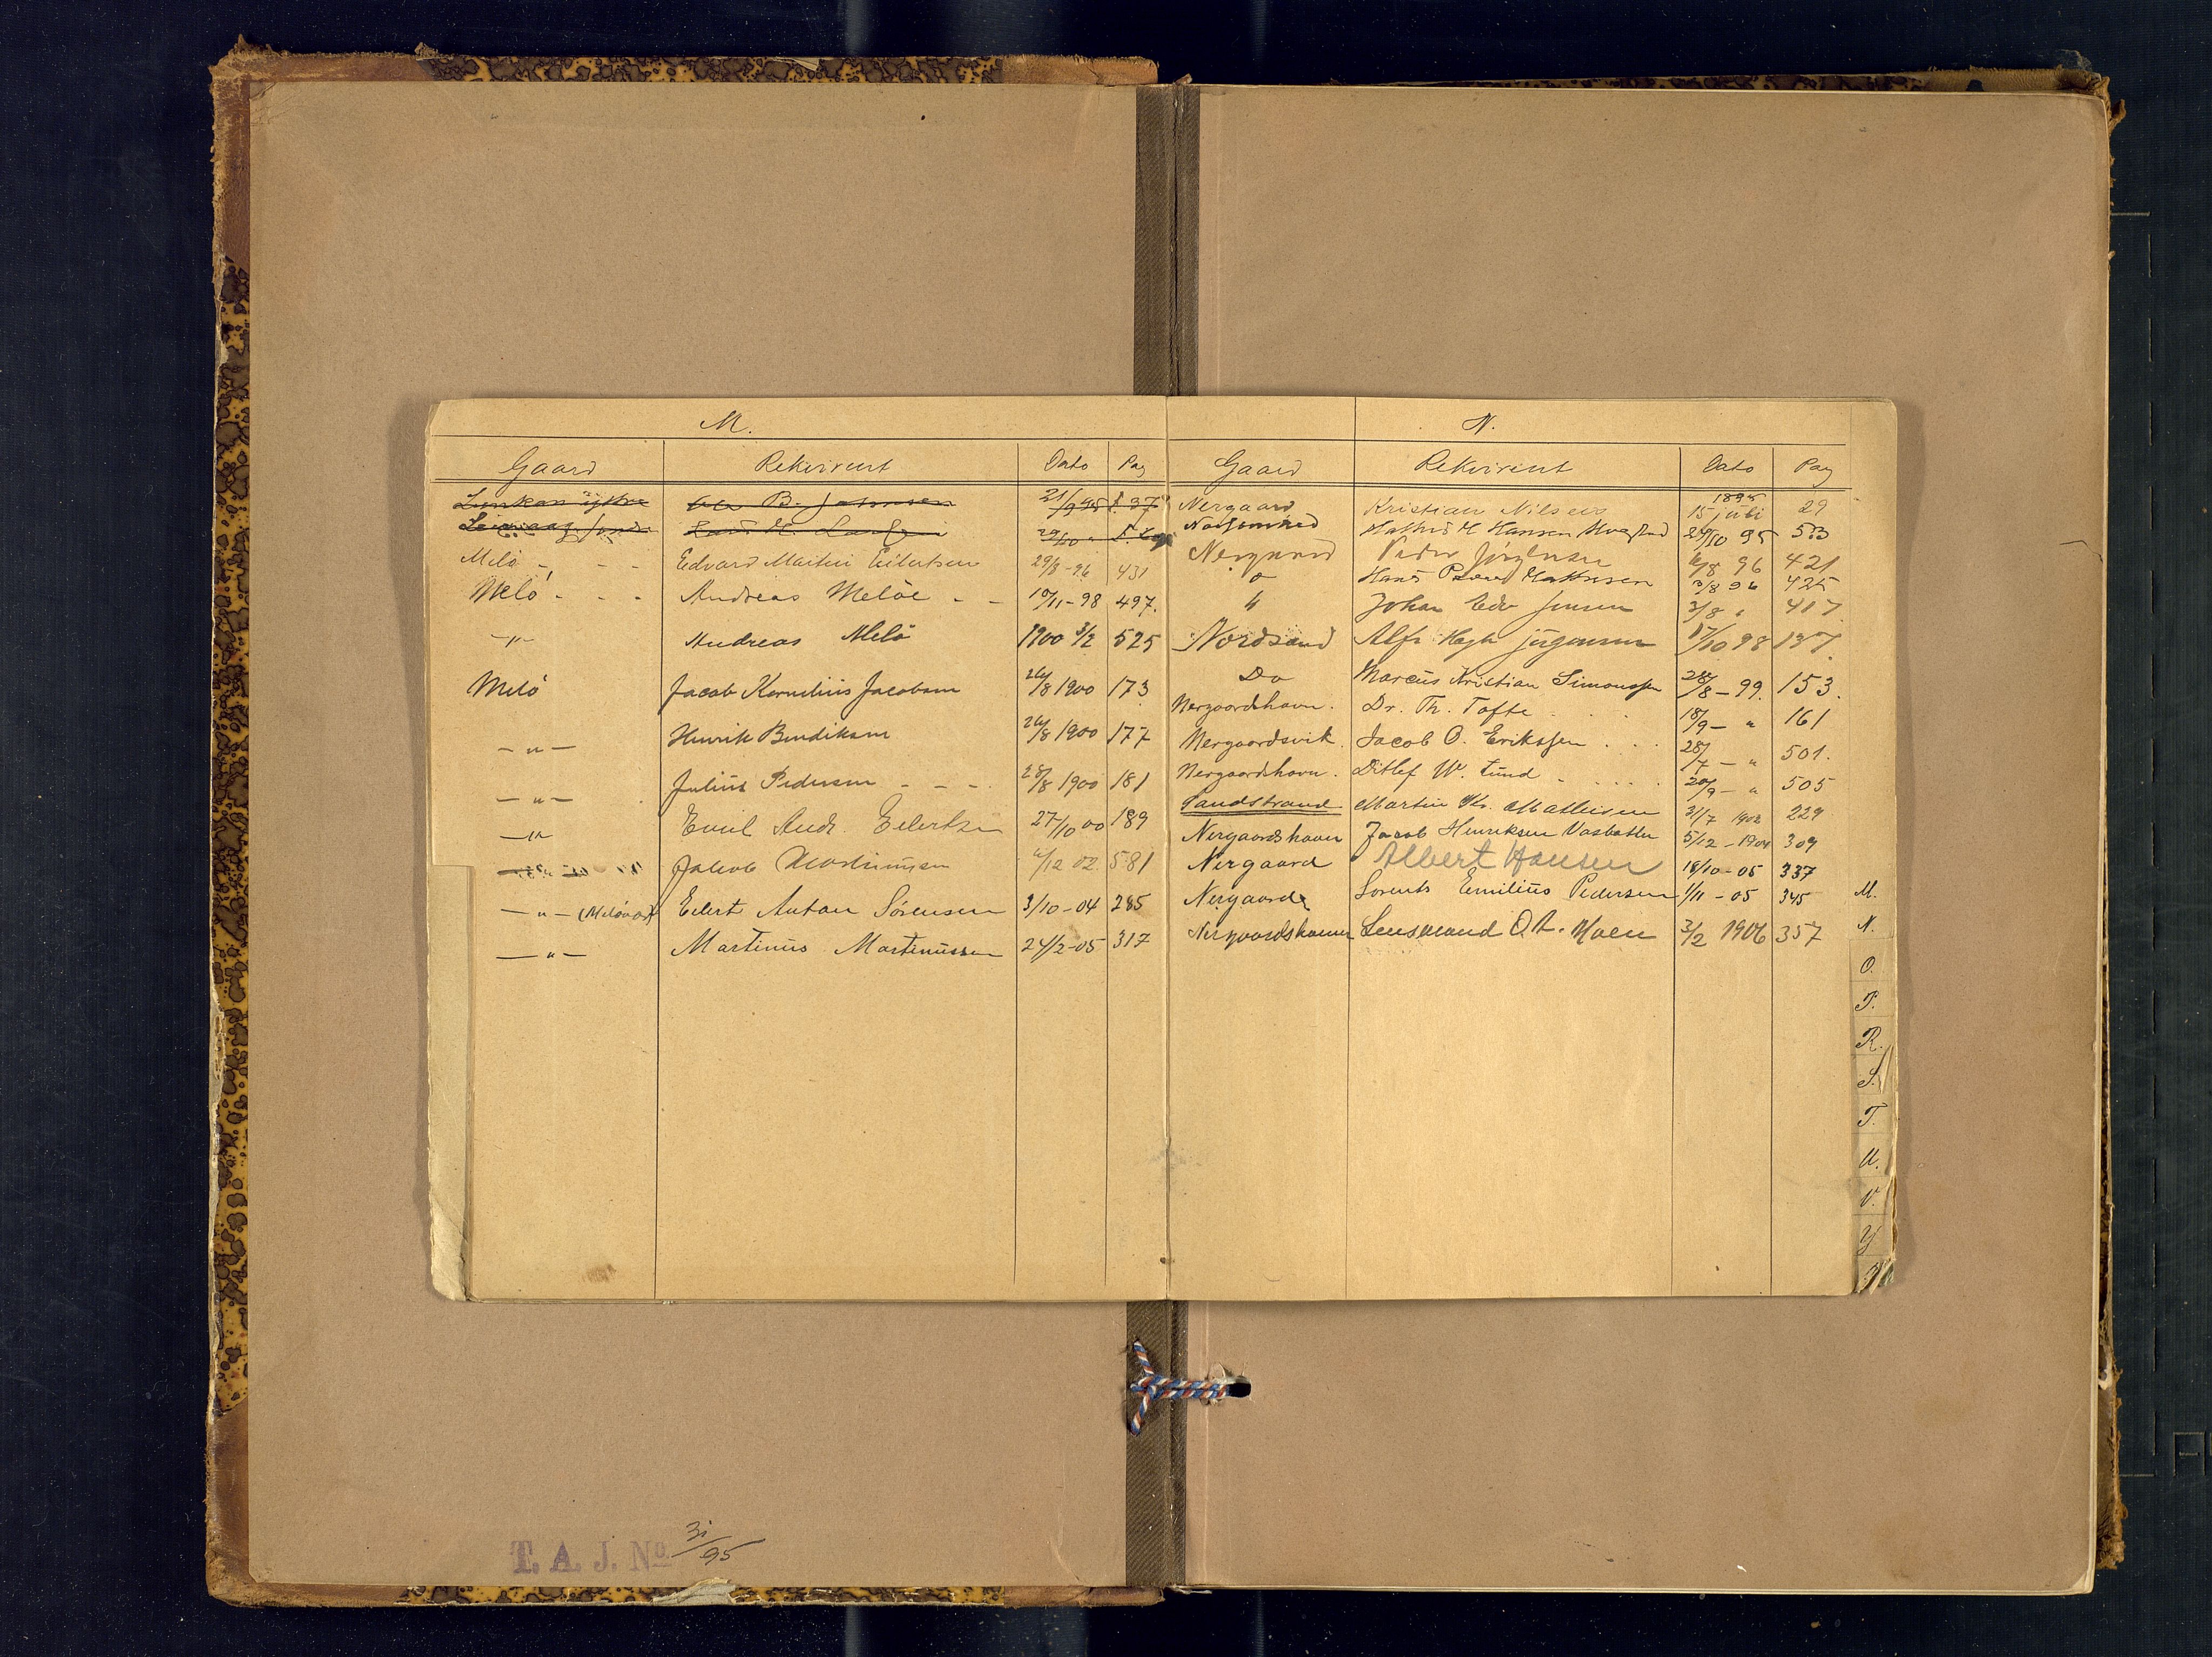 M.
Gaard Rekvirent Dato Pag
B. Johnsen 21/9 95 S. 37
Melö - - - Edvard Martin Eilertsen 29/8-96 431
Melö - - - Andreas Melöe - - 10/11-98 497.
-"- Andreas Melö 1900 3/2 525
Melö Jacob Kornelius Jacobsen 26/8 1900 173
-"- Henrik Bendiksen 26/8 1900 177
-"- Julius Pedersen - - - 28/8 1900 181
-"- Emil Andr. Eilertsen 27/10 00 189
-"- Jakob Martinussen /12 02. 581
-"- Eilert Antan Sörensen 3/10-04 285
-"- Martinus Martinussen 24/2-05 317
N.
Gaard Rekvirent Dato Pag
Nergaard Kristian Nilsen 1895 15 juli 29
Hansen 29/10 95 53
Nergaard Peder Jörgensen /8 96 421
" Hans Peder Mathisen 3/8 96 425
" Johan Edv Jensen 3/8 " 417
Nordsand Alfr. Hagb. Jörgensen 17/10 98 137.
Do Marcus Kristian Simonssen 28/8-99. 153.
Nergaardshavn. Dr. Th. Tofte . . . 18/9-" 161
Nergaardsvik. Jacob O. Erikssen . . . 28/7-" 501.
Nergaardshavn. Ditlef W. Lund - . . . 20/9-" 505
Sandstrand Martin Kr. Mathisen 31/7 1902 229
Nergaardshavn Jacob Henriksen 5/12-1904 309
Nergaard Albert Hansen 18/10-05 337
Nergaard Lorents Emilius Pedersen 1/11-05 345
Nergaardshavn Lensmand O. A. Moen 3/2 1906 357
M.
N.
O.
P.
R.
S.
T.
U.
V.
Y
T. A. J. No 31/95